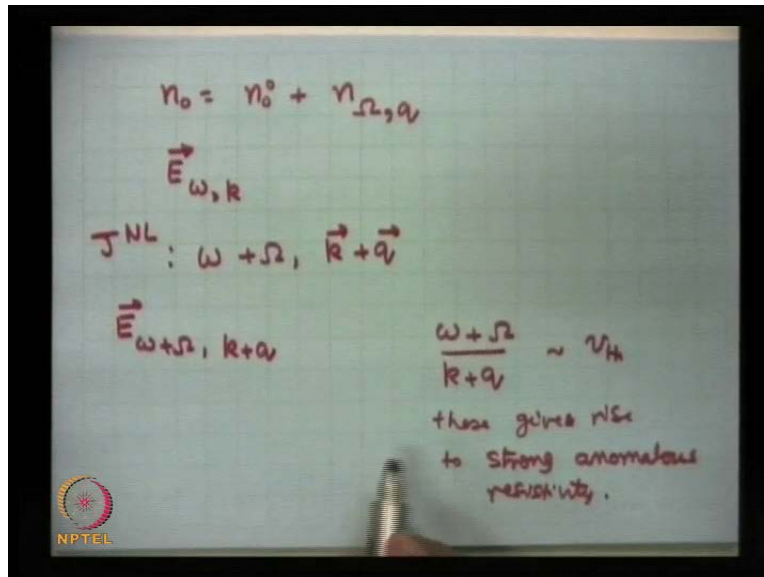 n₀ = n₀⁰ + n_Ω,q
E⃗_ω,k
J^NL : ω + Ω, k⃗ + q⃗
E⃗_ω+Ω, k+q
(ω + Ω)/(k + q) ~ v_th
these gives rise
to strong anomalous
resistivity.
NPTEL